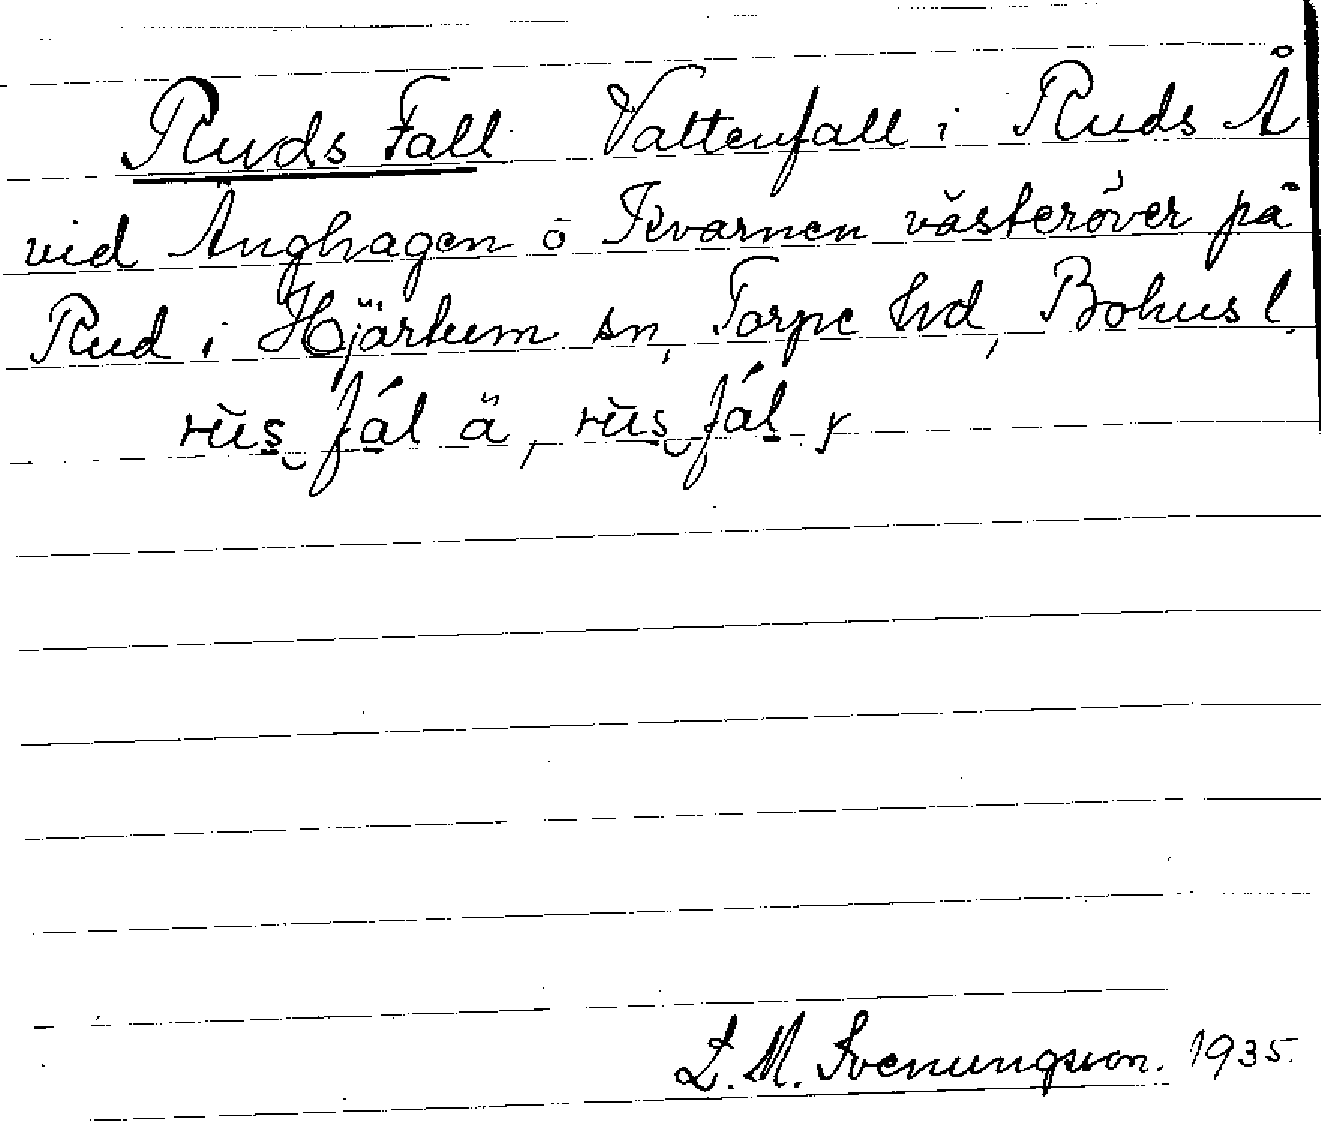 Ruds Fall Vattenfall i Ruds Å
vid Änghagen o Kvarnen västeröver på
Rud i Hjärtum sn, Torpe hd, Bohusl.
rūs̱ fál ä, rūs̱ fáḻ
L. M. Svenungsson. 1935.